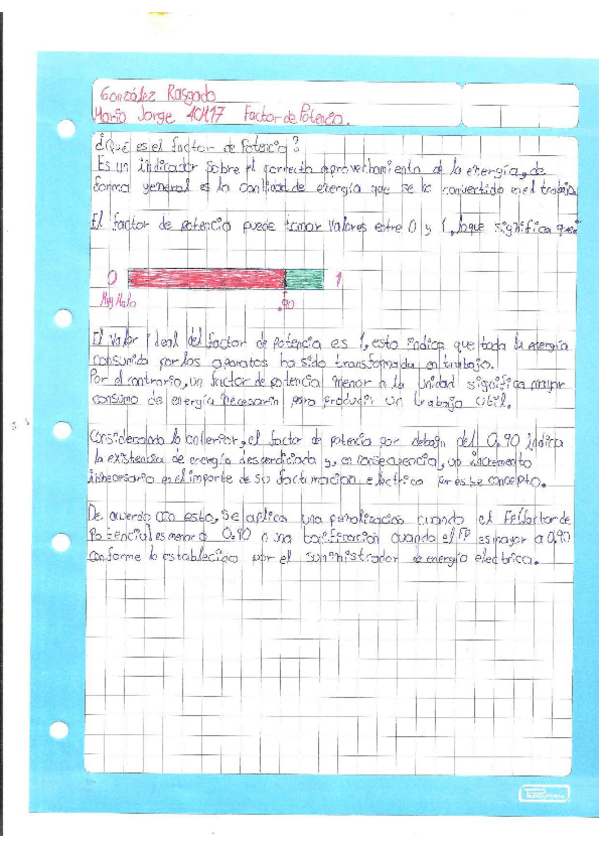 González Rasgado
Mario Jorge 40417 Factor de Potencia.
¿Qué es el factor de Potencia?
Es un indicador sobre el correcto aprovechamiento de la energía, de
forma general es la cantidad de energía que se ha convertido en el trabajo
El factor de potencia puede tomar valores entre 0 y 1, lo que significa que:
0 1
Muy Malo .90
El valor ideal del factor de potencia es 1, esto indica que toda la energía
consumida por los aparatos ha sido transformada en trabajo.
Por el contrario, un factor de potencia menor a la unidad significa mayor
consumo de energía necesaria para producir un trabajo util.
Considerando lo anterior, el factor de potencia por debajo del 0.90 indica
la existencia de energía desperdiciada y, en consecuencia, un incremento
innecesario en el importe de su facturacion electrica por este concepto.
De acuerdo con esto, se aplica una penalización cuando el FP (factor de
Potencia) es menor a 0.90 o una bonificación cuando el FP es mayor a 0.90
conforme lo establecido por el suministrador de energía electrica.